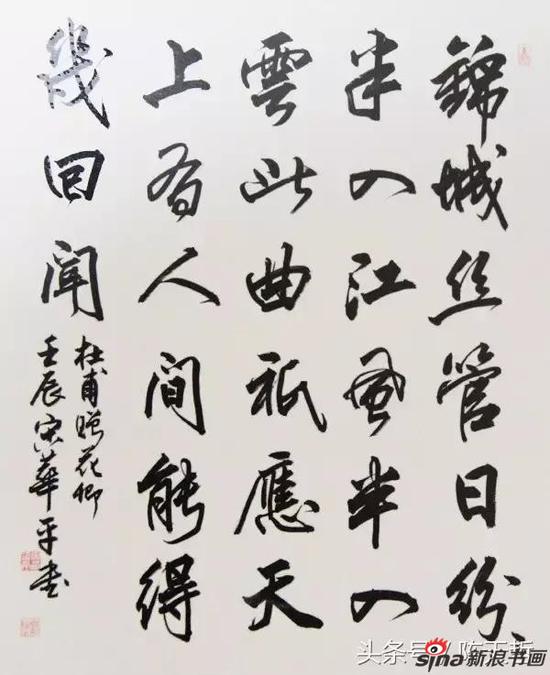 錦城丝管日紛々
半入江風半入
雲此曲祇應天
上有人间能得
幾回闻
杜甫贈花卿
壬辰宋華平书
头条号 /
sina新浪书画